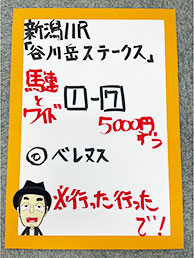 新潟11R
『谷川岳ステークス』
馬連
とワイド
1-7
5000円
ずつ
◎ベレヌス
※行った行った
で!